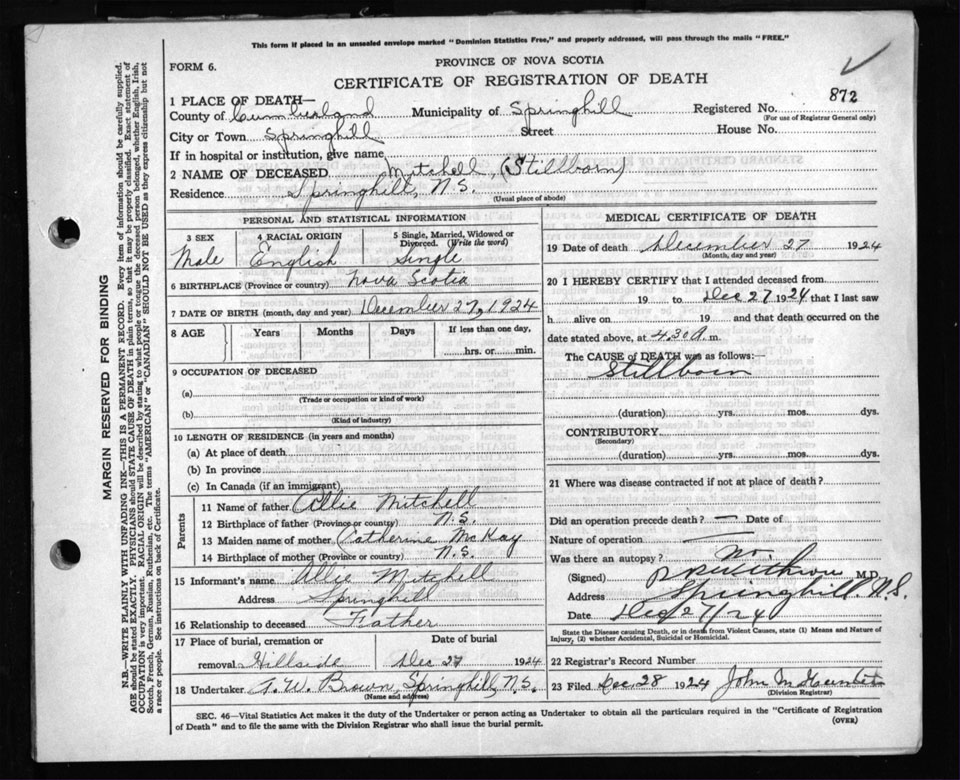 This form if placed in an unsealed envelope marked "Dominion Statistics Free," and properly addressed, will pass through the mails "FREE."
FORM 6.
PROVINCE OF NOVA SCOTIA
CERTIFICATE OF REGISTRATION OF DEATH
872
1 PLACE OF DEATH—
County of Cumberland Municipality of Springhill Registered No.
(For use of Registrar General only)
City or Town Springhill Street House No.
If in hospital or institution, give name
2 NAME OF DECEASED Mitchell, (Stillborn)
Residence Springhill, N.S.
(Usual place of abode)
PERSONAL AND STATISTICAL INFORMATION
3 SEX 4 RACIAL ORIGIN 5 Single, Married, Widowed or Divorced. (Write the word)
Male English Single
6 BIRTHPLACE (Province or country) Nova Scotia
7 DATE OF BIRTH (month, day and year) December 27, 1924
8 AGE Years Months Days If less than one day,
hrs. or min.
9 OCCUPATION OF DECEASED
(a)
(Trade or occupation or kind of work)
(b)
(Kind of industry)
10 LENGTH OF RESIDENCE (in years and months)
(a) At place of death
(b) In province
(c) In Canada (if an immigrant)
Parents
11 Name of father Allie Mitchell
12 Birthplace of father (Province or country) N.S.
13 Maiden name of mother Catherine McKay
14 Birthplace of mother (Province or country) N.S.
15 Informant's name Allie Mitchell
Address Springhill
16 Relationship to deceased Father
17 Place of burial, cremation or removal Hillside Date of burial Dec 27 1924
18 Undertaker A. W. Brown, Springhill, N.S.
(Name and address)
MEDICAL CERTIFICATE OF DEATH
19 Date of death December 27 1924
(Month, day and year)
20 I HEREBY CERTIFY that I attended deceased from
19 to Dec 27 1924 that I last saw
h alive on 19 and that death occurred on
date stated above, at 4.30 A. m.
The CAUSE of DEATH was as follows:—
Stillborn
(duration) yrs. mos. dys.
CONTRIBUTORY
(Secondary)
(duration) yrs. mos. dys.
21 Where was disease contracted if not at place of death?
Did an operation precede death? — Date of
Nature of operation —
Was there an autopsy? No
(Signed) M.D.
Address Springhill. N.S.
Date Dec 27/24
State the Disease causing Death, or in death from Violent Causes, state (1) Means and Nature of Injury, (2) whether Accidental, Suicidal or Homicidal.
22 Registrar's Record Number
23 Filed Dec 28 1924 John M
(Division Registrar)
SEC. 46—Vital Statistics Act makes it the duty of the Undertaker or person acting as Undertaker to obtain all the particulars required in the "Certificate of Registration
of Death" and to file the same with the Division Registrar who shall issue the burial permit.
(OVER)
MARGIN RESERVED FOR BINDING
N.B.—WRITE PLAINLY WITH UNFADING INK—THIS IS A PERMANENT RECORD. Every item of information should be carefully supplied.
AGE should be stated EXACTLY. PHYSICIANS should STATE CAUSE OF DEATH in plain terms, so that it may be properly classified. Exact statement of
OCCUPATION is very important. RACIAL ORIGIN will be described by stating to what people or tongue the deceased person belonged, whether English, Irish,
Scotch, French, German, Russian, Ruthenian, etc. The terms "AMERICAN" or "CANADIAN" SHOULD NOT BE USED as they express citizenship but not
a race or people. See instructions on back of Certificate.